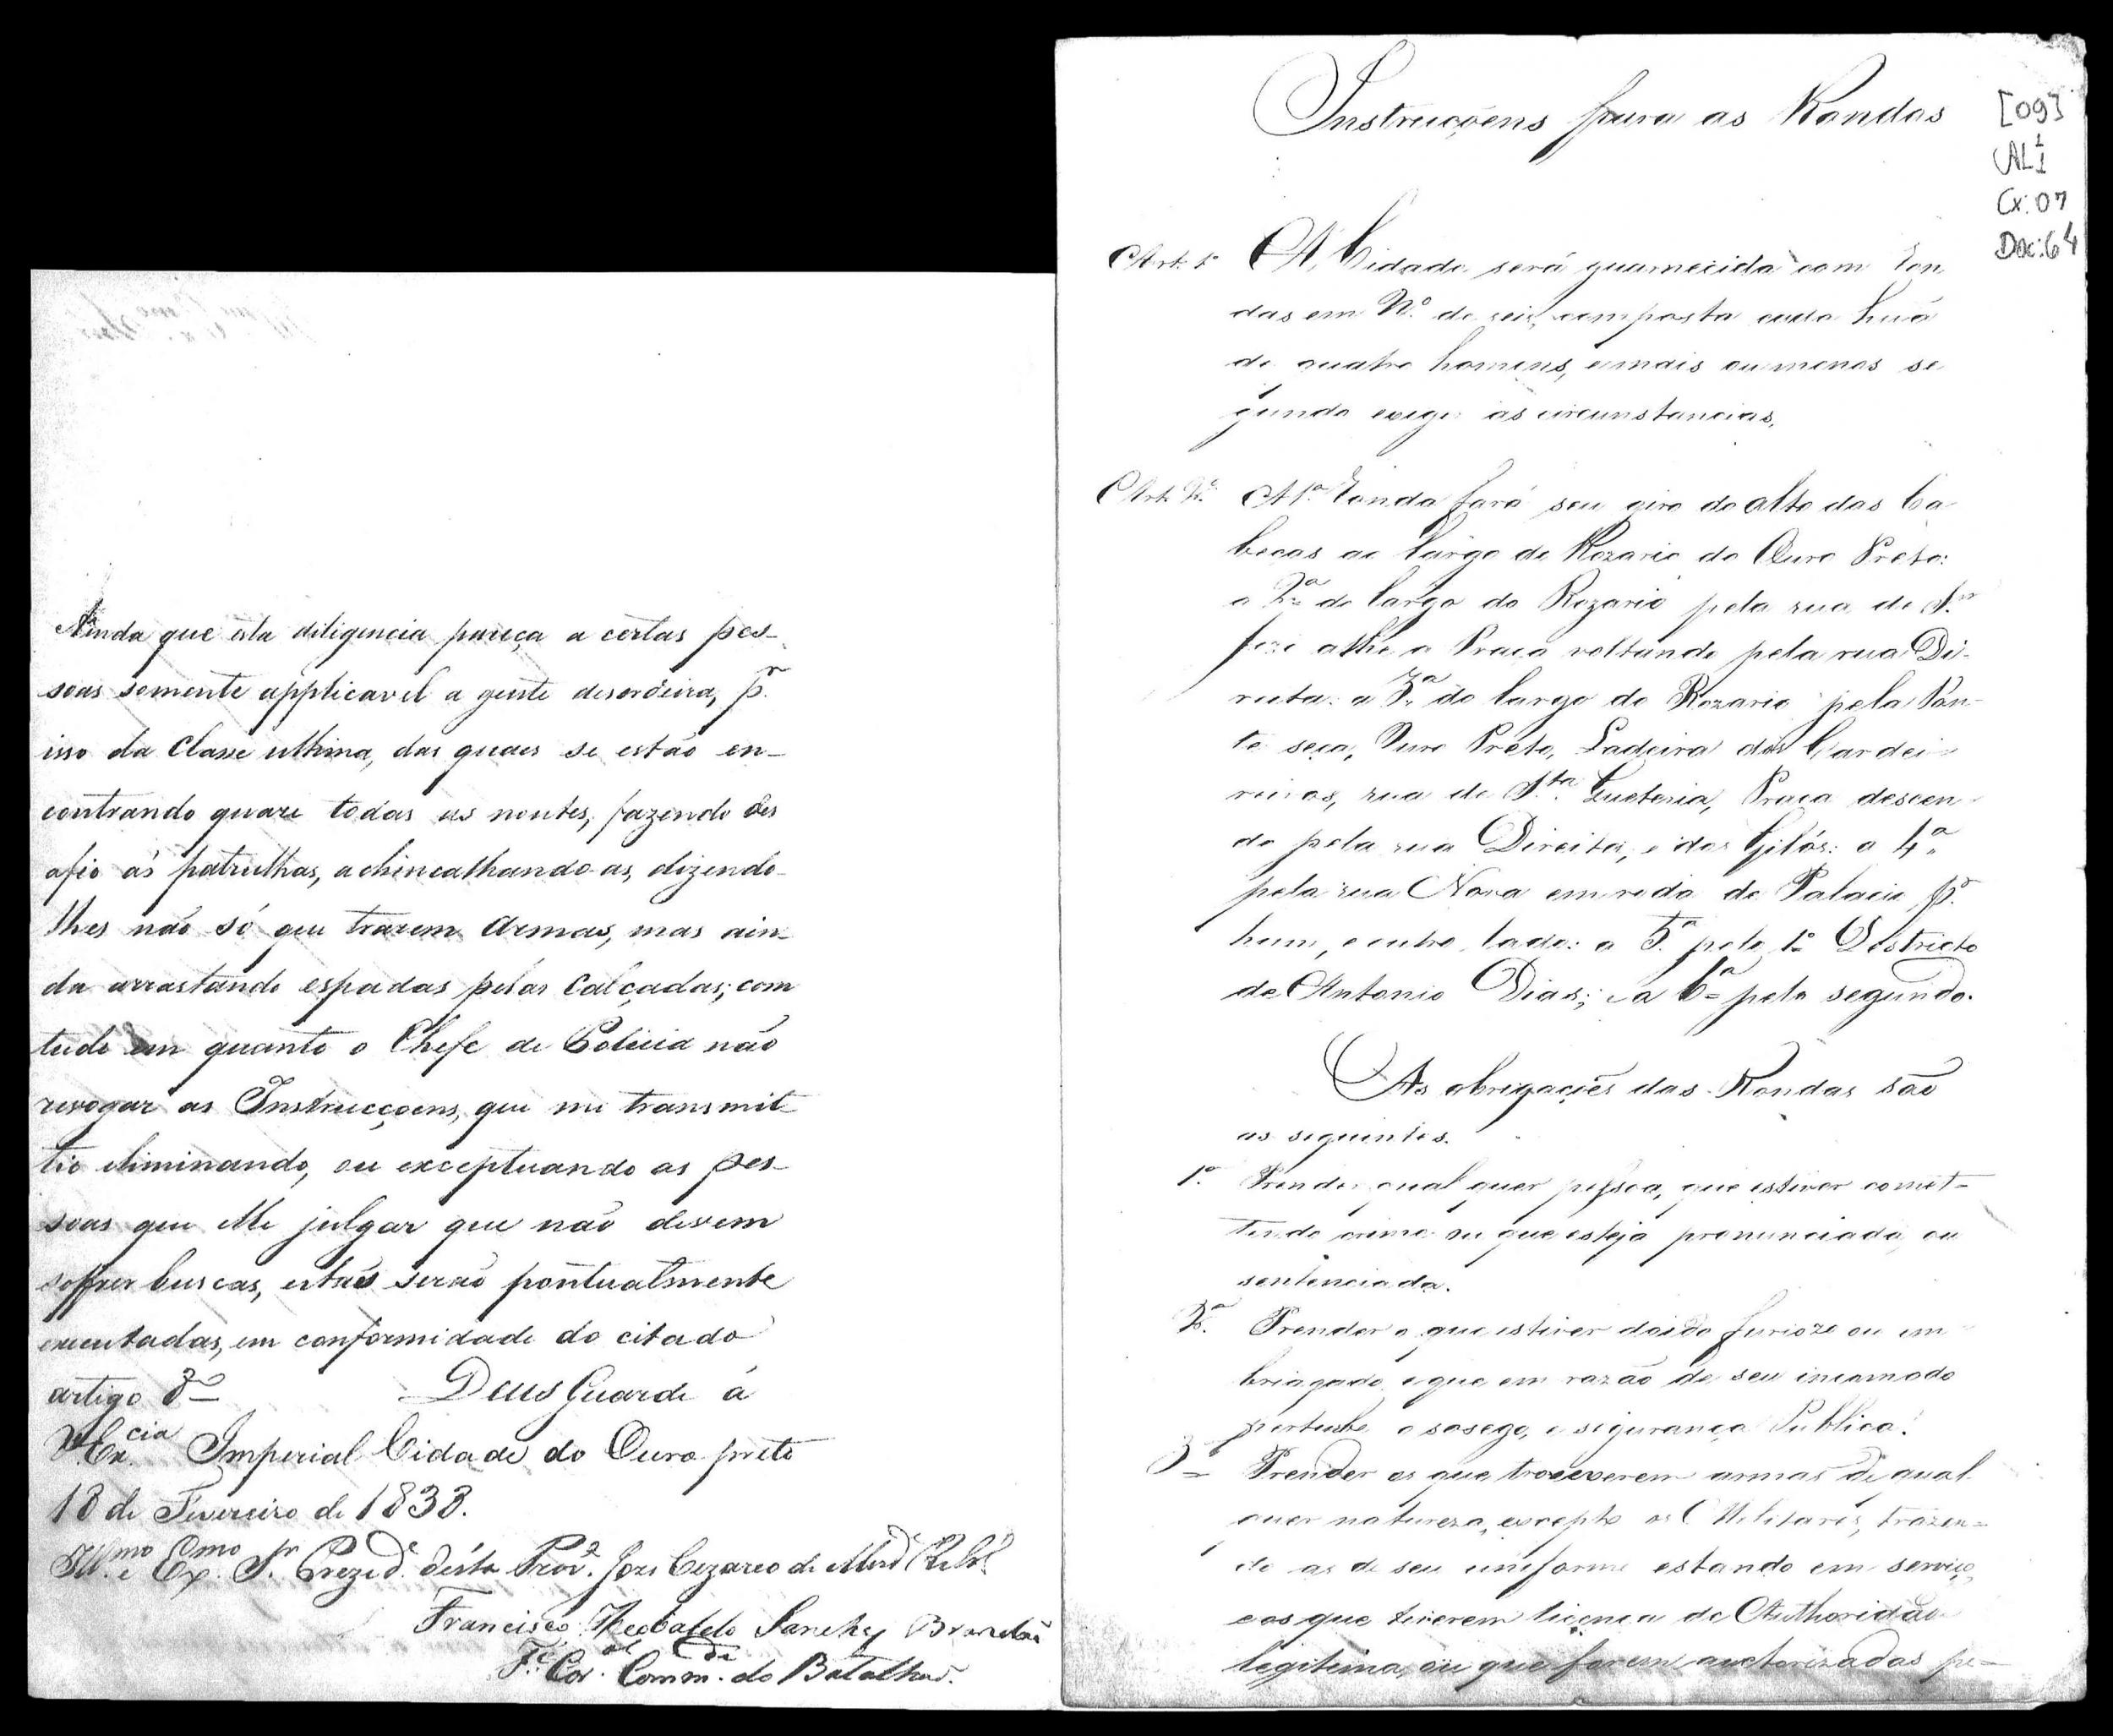 Ainda que esta diligencia pareça a certas pes-
soas somente applicavel a gente desordeira, p.r
isso da Classe ultima, das quaes se estão en-
contrando quaze todas as noutes, fazendo des
afio ás patrulhas, achincalhando-as, dizendo-
lhes não só que trazem Armas, mas ain-
da arrastando espadas pelas Calçadas; com
tudo em quanto o Chefe de Policia não
revogar as Instrucçoens, que me transmit-
tio eliminando, ou exceptuando as pes-
soas que elle julgar que não devem
soffrer buscas, estas serão pontualmente
executadas, em conformidade do citado
artigo 8º Deus Guarde á
V. Ex.cia Imperial Cidade do Ouro preto
18 de Fevereiro de 1838.
Ill.mo e Ex.mo S.r Prezid.e desta Prov.a Joze Cezareo de
Francisco Theobaldo Sanches Brandão
T.e Cor.el Comm.de do Batalhão.
Instrucçoens para as Rondas
[09]
AL1
Cx: 07
Doc: 64
Art. 1º A Cidade será guarnecida com Ron
das em N.º de seis, composta cada huã
de quatro homens, e mais ou menos se
gundo exegir as circunstancias.
Art. 2º A 1.ª Ronda fará seu giro do alto das Ca
beças ao largo do Rozario do Ouro Preto:
a 2.ª do largo do Rozario pela rua de S.m
Joze athe a Praça voltando pela rua Di-
reita: a 3.ª do largo do Rozario pela Pon-
te seca, Ouro Preto, Ladeira dos Cardei-
reiros, rua de S.ta Queteria, Praça descen
do pela rua Direita, e dos : a 4.ª
pela rua Nova em roda de Palacio p.r
hum, e outro lado: a 5.ª pelo 1º Destricto
de Antonio Dias; e a 6.ª pelo segundo.
As obrigações das Rondas são
as seguintes.
1º Prender qual quer pessoa, que estiver comet-
tendo crime ou que esteja pronunciada, ou
sentenciada.
2º Prender o que estiver doido furiozo ou em
briagado e que em razão de seu incomodo
perturbe o sosego, e sigurança Publica.
3º Prender os que trouxerem armas de qual
quer natureza, excepto os Militares, trazen-
do as de seu uniforme estando em serviço,
e os que tiverem licença de Authoridade
legitima, ou que forem auctorizadas pe-